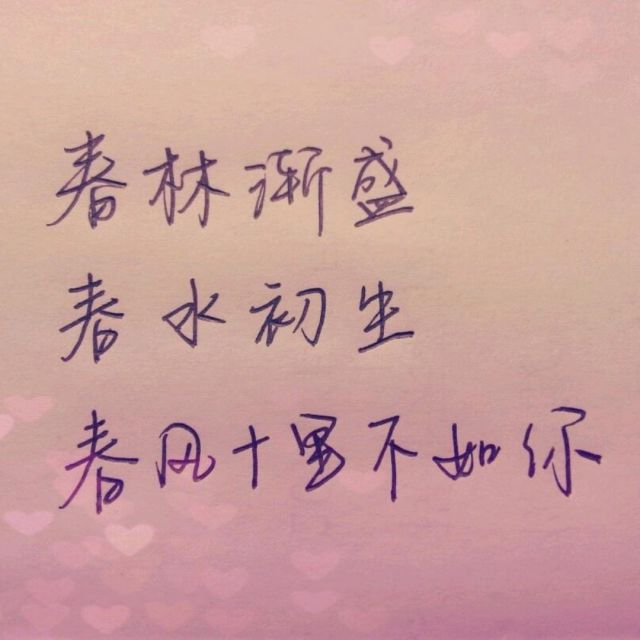 春林渐盛
春水初生
春风十里不如你